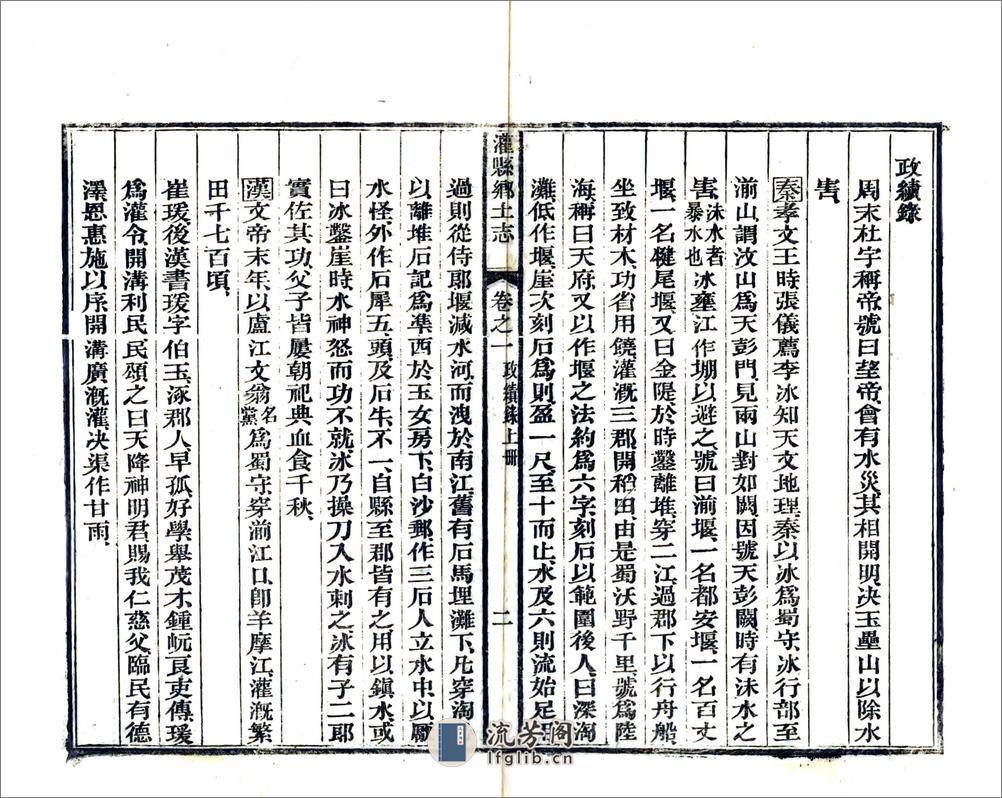 政績錄
周末杜宇稱帝號曰望帝會有水災其相開明決玉壘山以除水
害、
秦孝文王時、張儀薦李冰知天文地理、秦以冰爲蜀守、冰行部至
湔山、謂汶山爲天彭門、見兩山對如闕、因號天彭闕、時有沬水之
害、沬水者暴水也冰壅江作堋以避之、號曰湔堰、一名都安堰、一名百丈
堰、一名犍尾堰、又曰金隄、於時鑿離堆、穿二江、過郡下以行舟船、
坐致材木、功省用饒、灌漑三郡、開稻田、由是蜀沃野千里、號爲陸
海、稱曰天府、又以作堰之法、約爲六字、刻石以範圍後人、曰深淘
灘、低作堰、崖次刻石爲則、盈一尺、至十而止、水及六則流始足、
灌縣鄉土志 卷之一 政績錄上冊 二
過則從侍郞堰減水河而洩於南江、舊有石馬埋灘下、凡穿淘
以離堆石記爲準、西於玉女房下、白沙郵作三石人立水中、以厭
水怪、外作石犀五、頭及石牛、不一、自縣至郡皆有之、用以鎭水、或
曰冰鑿崖時、水神怒而功不就、冰乃操刀入水刺之、冰有子二郞
實佐其功、父子皆屢朝祀典、血食千秋、
漢文帝末年、以廬江文翁名黨爲蜀守、穿湔江口、卽羊摩江、灌漑繁
田千七百頃、
崔瑗後漢書瑗字伯玉、涿郡人、早孤、好學、舉茂才、鍾岏良吏傳、瑗
爲灌令、開溝利民、民頌之曰、天降神明君、賜我仁慈父、臨民有德
澤、恩惠施以序、開溝廣漑灌、決渠作甘雨、
流芳閣
lfglib.cn